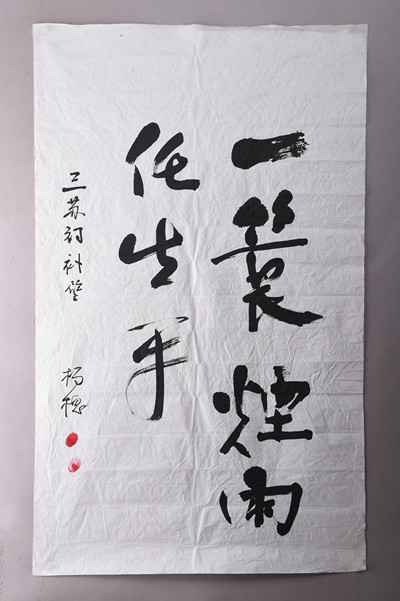 一蓑煙雨
任生平
三苏祠补壁
杨